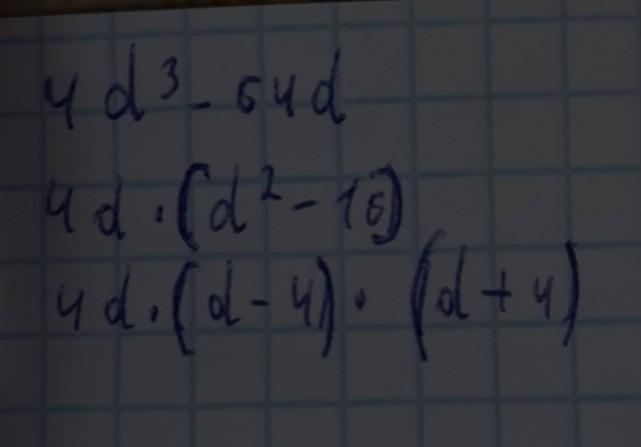 4d³ - 64d
4d · (d² - 16)
4d · (d - 4) · (d + 4)